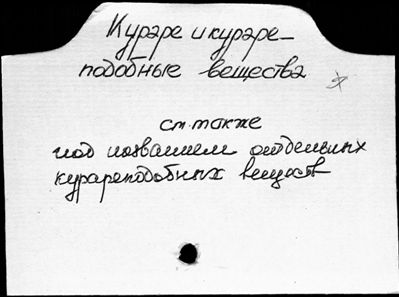 Кураре и кураре-
подобные вещества
см. также
под названием отдельных
курареподобных веществ